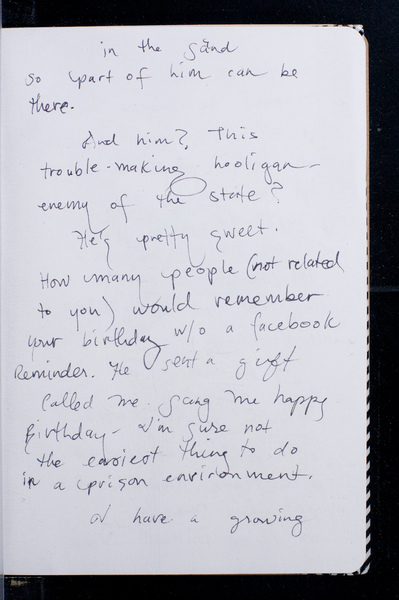 in the sand
so part of him can be
there.
And him? This
trouble-making hooligan -
enemy of the state?
He's pretty sweet.
How many people (not related
to you) would remember
your birthday w/o a facebook
Reminder. He sent a gift
Called me. Sang me happy
Birthday - I'm sure not
the easiest thing to do
in a prison environment.
I have a growing